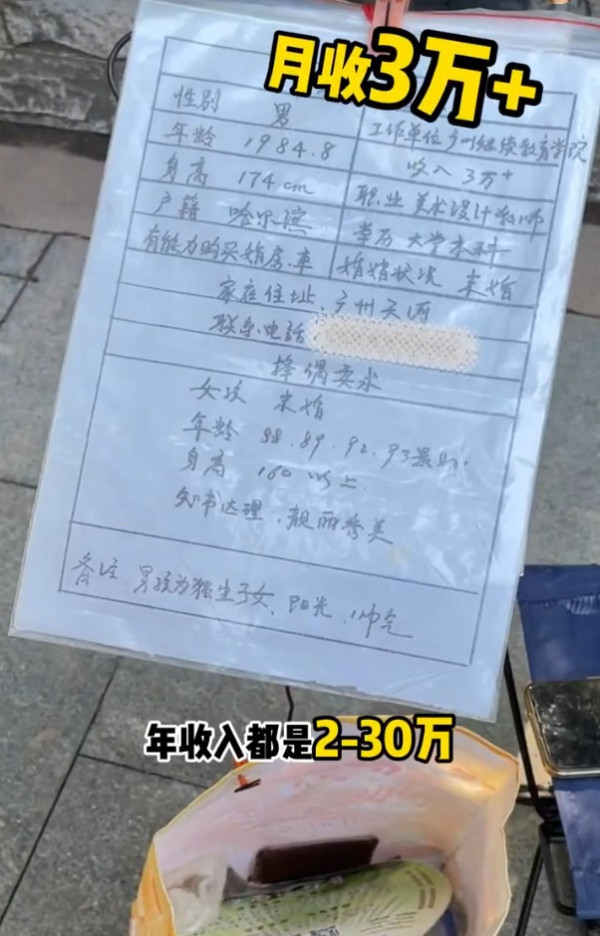 月收3万+
性别 男
工作单位广州继续教育学院
年龄 1984.8
收入 3万+
身高 174cm
职业 美术设计教师
户籍 哈尔滨
学历 大学本科
有能力购买婚房.车
婚姻状况 未婚
家庭住址、广州天河
联系电话
择偶要求
女孩 未婚
年龄 88.89.92.93最好.
身高 160以上
知书达理,靓丽秀美
备注、男孩为独生子女、阳光、帅气
年收入都是2-30万